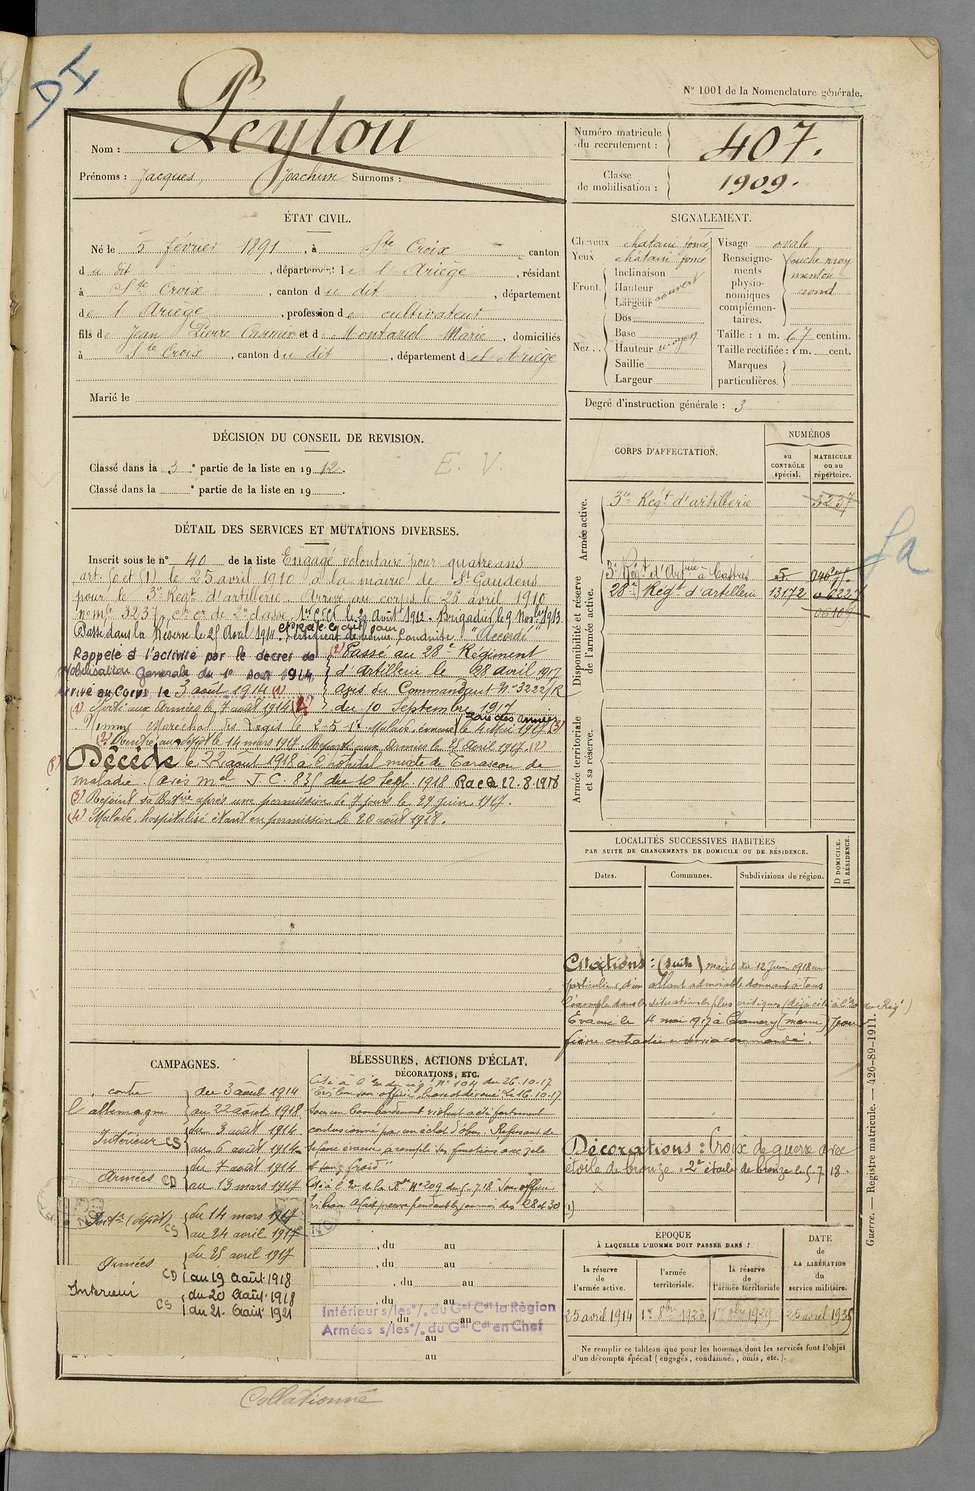 DI
N° 1001 de la Nomenclature générale.
Nom : Peytou
Prénoms : Jacques, Joachim Surnoms :
Numéro matricule du recrutement : 407.
Classe de mobilisation : 1909.
ÉTAT CIVIL.
Né le 5 février 1891, à Ste Croix canton
du dit, département de l'Ariège, résidant
à Ste Croix, canton du dit, département
de l'Ariège, profession de cultivateur
fils de Jean Pierre et de Marie, domiciliés
à Ste Croix, canton du dit, département de l'Ariège
Marié le
SIGNALEMENT.
Cheveux chatain foncé
Yeux chatain foncé
Front
Inclinaison
Hauteur
Largeur
Nez
Dos
Base
Hauteur
Saillie
Largeur
Visage ovale
Renseignements physionomiques complémentaires.
bouche moy
menton
rond
Taille : 1 m. 67 centim.
Taille rectifiée : 1 m. cent.
Marques particulières.
Degré d'instruction générale : 3
DÉCISION DU CONSEIL DE REVISION.
Classé dans la 3e partie de la liste en 1912.
E. V.
Classé dans la e partie de la liste en 19
DÉTAIL DES SERVICES ET MUTATIONS DIVERSES.
Inscrit sous le n° 40 de la liste Engagé volontaire pour quatre ans
le 25 avril 1910 à la mairie de St Gaudens
pour le 3e Régt d'artillerie. Arrivé au corps le 25 avril 1910
3237, de 2e classe, Brigadier le 9 Nov 1913
Passé dans la Réserve le 25 Avril 1914. Certificat de bonne conduite "Accordé"
Rappelé à l'activité par le décret de
Mobilisation Générale du 1er Août 1914
Arrivé au Corps le 3 août 1914 (1)
Passé au 28e Régiment
d'artillerie le 28 avril 1917
avis du Commandant N° 3222/R
du 10 Septembre 1917
(1) Parti aux Armées le 7 août 1914
Nommé Maréchal des Logis le Malade, évacué le 4 Mai 1917 (3)
(2) Rentré au dépôt le 14 mars 1917. Reparti aux Armées le 25 avril 1917.
Décédé le 22 août 1918 à l'hôpital mixte de Tarascon de
maladie. (avis mel J. C. 835 du 10 Sept. 1918 Rac le 22.8.1918
(3) Rejoint sa Batterie après une permission de 7 jours le 27 juin 1917.
(4) Malade, hospitalisé étant en permission le 20 août 1918.
CORPS D'AFFECTATION.
NUMÉROS
au CONTRÔLE spécial.
MATRICULE ou au répertoire.
Armée active.
3e Régt d'artillerie 3237
Disponibilité et réserve de l'armée active.
3e Régt d'Artrie à Castres
28e Régt d'artillerie 13172
Armée territoriale et sa réserve.
La
LOCALITÉS SUCCESSIVES HABITÉES
PAR SUITE DE CHANGEMENTS DE DOMICILE OU DE RÉSIDENCE.
Dates. Communes. Subdivisions de région.
D DOMICILE.
R RÉSIDENCE.
Citations : (suite) du 12 Juin 1918
particulier d'un allant admirable donnant à tous
l'exemple dans les situations les plus critiques (déjà cité à l'
Evacué le 4 mai 1917 à (Marne) pour
fièvre contractée en service commandé.
Décorations : Croix de guerre avec
étoile de bronze. 2e étoile de bronze le 5.7.18.
CAMPAGNES.
contre l'allemagne
du 3 août 1914
au 22 août 1918
Intérieur CS
du 3 août 1914
au 6 août 1914
Armées CD
du 7 août 1914
au 13 mars 1917
Int. (dépôt) CS
du 14 mars 1917
au 24 avril 1917
Armées CD
du 25 avril 1917
au 19 Août 1918
Intérieur CS
du 20 Août 1918
au 21 Août 1921
BLESSURES, ACTIONS D'ÉCLAT,
DÉCORATIONS, ETC.
Cité à l'Ordre du régt N° 104 du 26.10.17
Très bon sous officier brave et dévoué. Le 16.10.17
sous un bombardement violent a été fortement
contusionné par un éclat d'obus. Refusant de
se faire évacuer a rempli ses fonctions avec zèle
et sang froid"
Cité à l'O. de la N° 209 du 5.7.18 "Sous officier
très bon a fait preuve pendant les journées des 28 et 30
, du au
, du au
, du au
, du au
Intérieur s/les °/. du Gal Cdt la Région
, du au
Armées s/les °/. du Gal Cdt en Chef
au
au
ÉPOQUE
À LAQUELLE L'HOMME DOIT PASSER DANS :
la réserve de l'armée active.
l'armée territoriale.
la réserve de l'armée territoriale
DATE de LA LIBÉRATION du service militaire.
25 avril 1914
25 avril 1935
Ne remplir ce tableau que pour les hommes dont les services font l'objet
d'un décompte spécial (engagés, condamnés, omis, etc.).
Guerre. — Registre matricule. — 426-89-1911.
Collationné